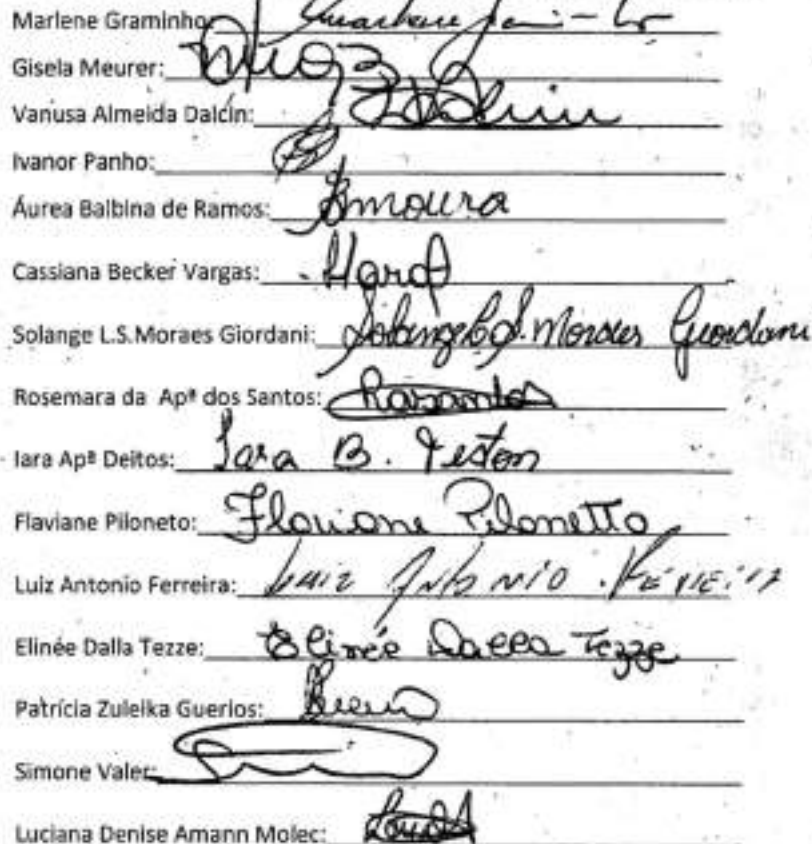 Marlene Graminho:
Gisela Meurer:
Vanusa Almeida Dalcin:
Ivanor Panho:
Áurea Balbina de Ramos: Amoura
Cassiana Becker Vargas:
Solange L.S.Moraes Giordani: Solange L.S. Moraes Giordani
Rosemara da Apª dos Santos: Rosantos
Iara Apª Deitos: Iara B. Teston
Flaviane Piloneto: Flaviane Pilonetto
Luiz Antonio Ferreira: Luiz Antonio Ferreira
Elinée Dalla Tezze: Elinée Dalla Tezze
Patrícia Zuleika Guerios:
Simone Valer:
Luciana Denise Amann Molec: